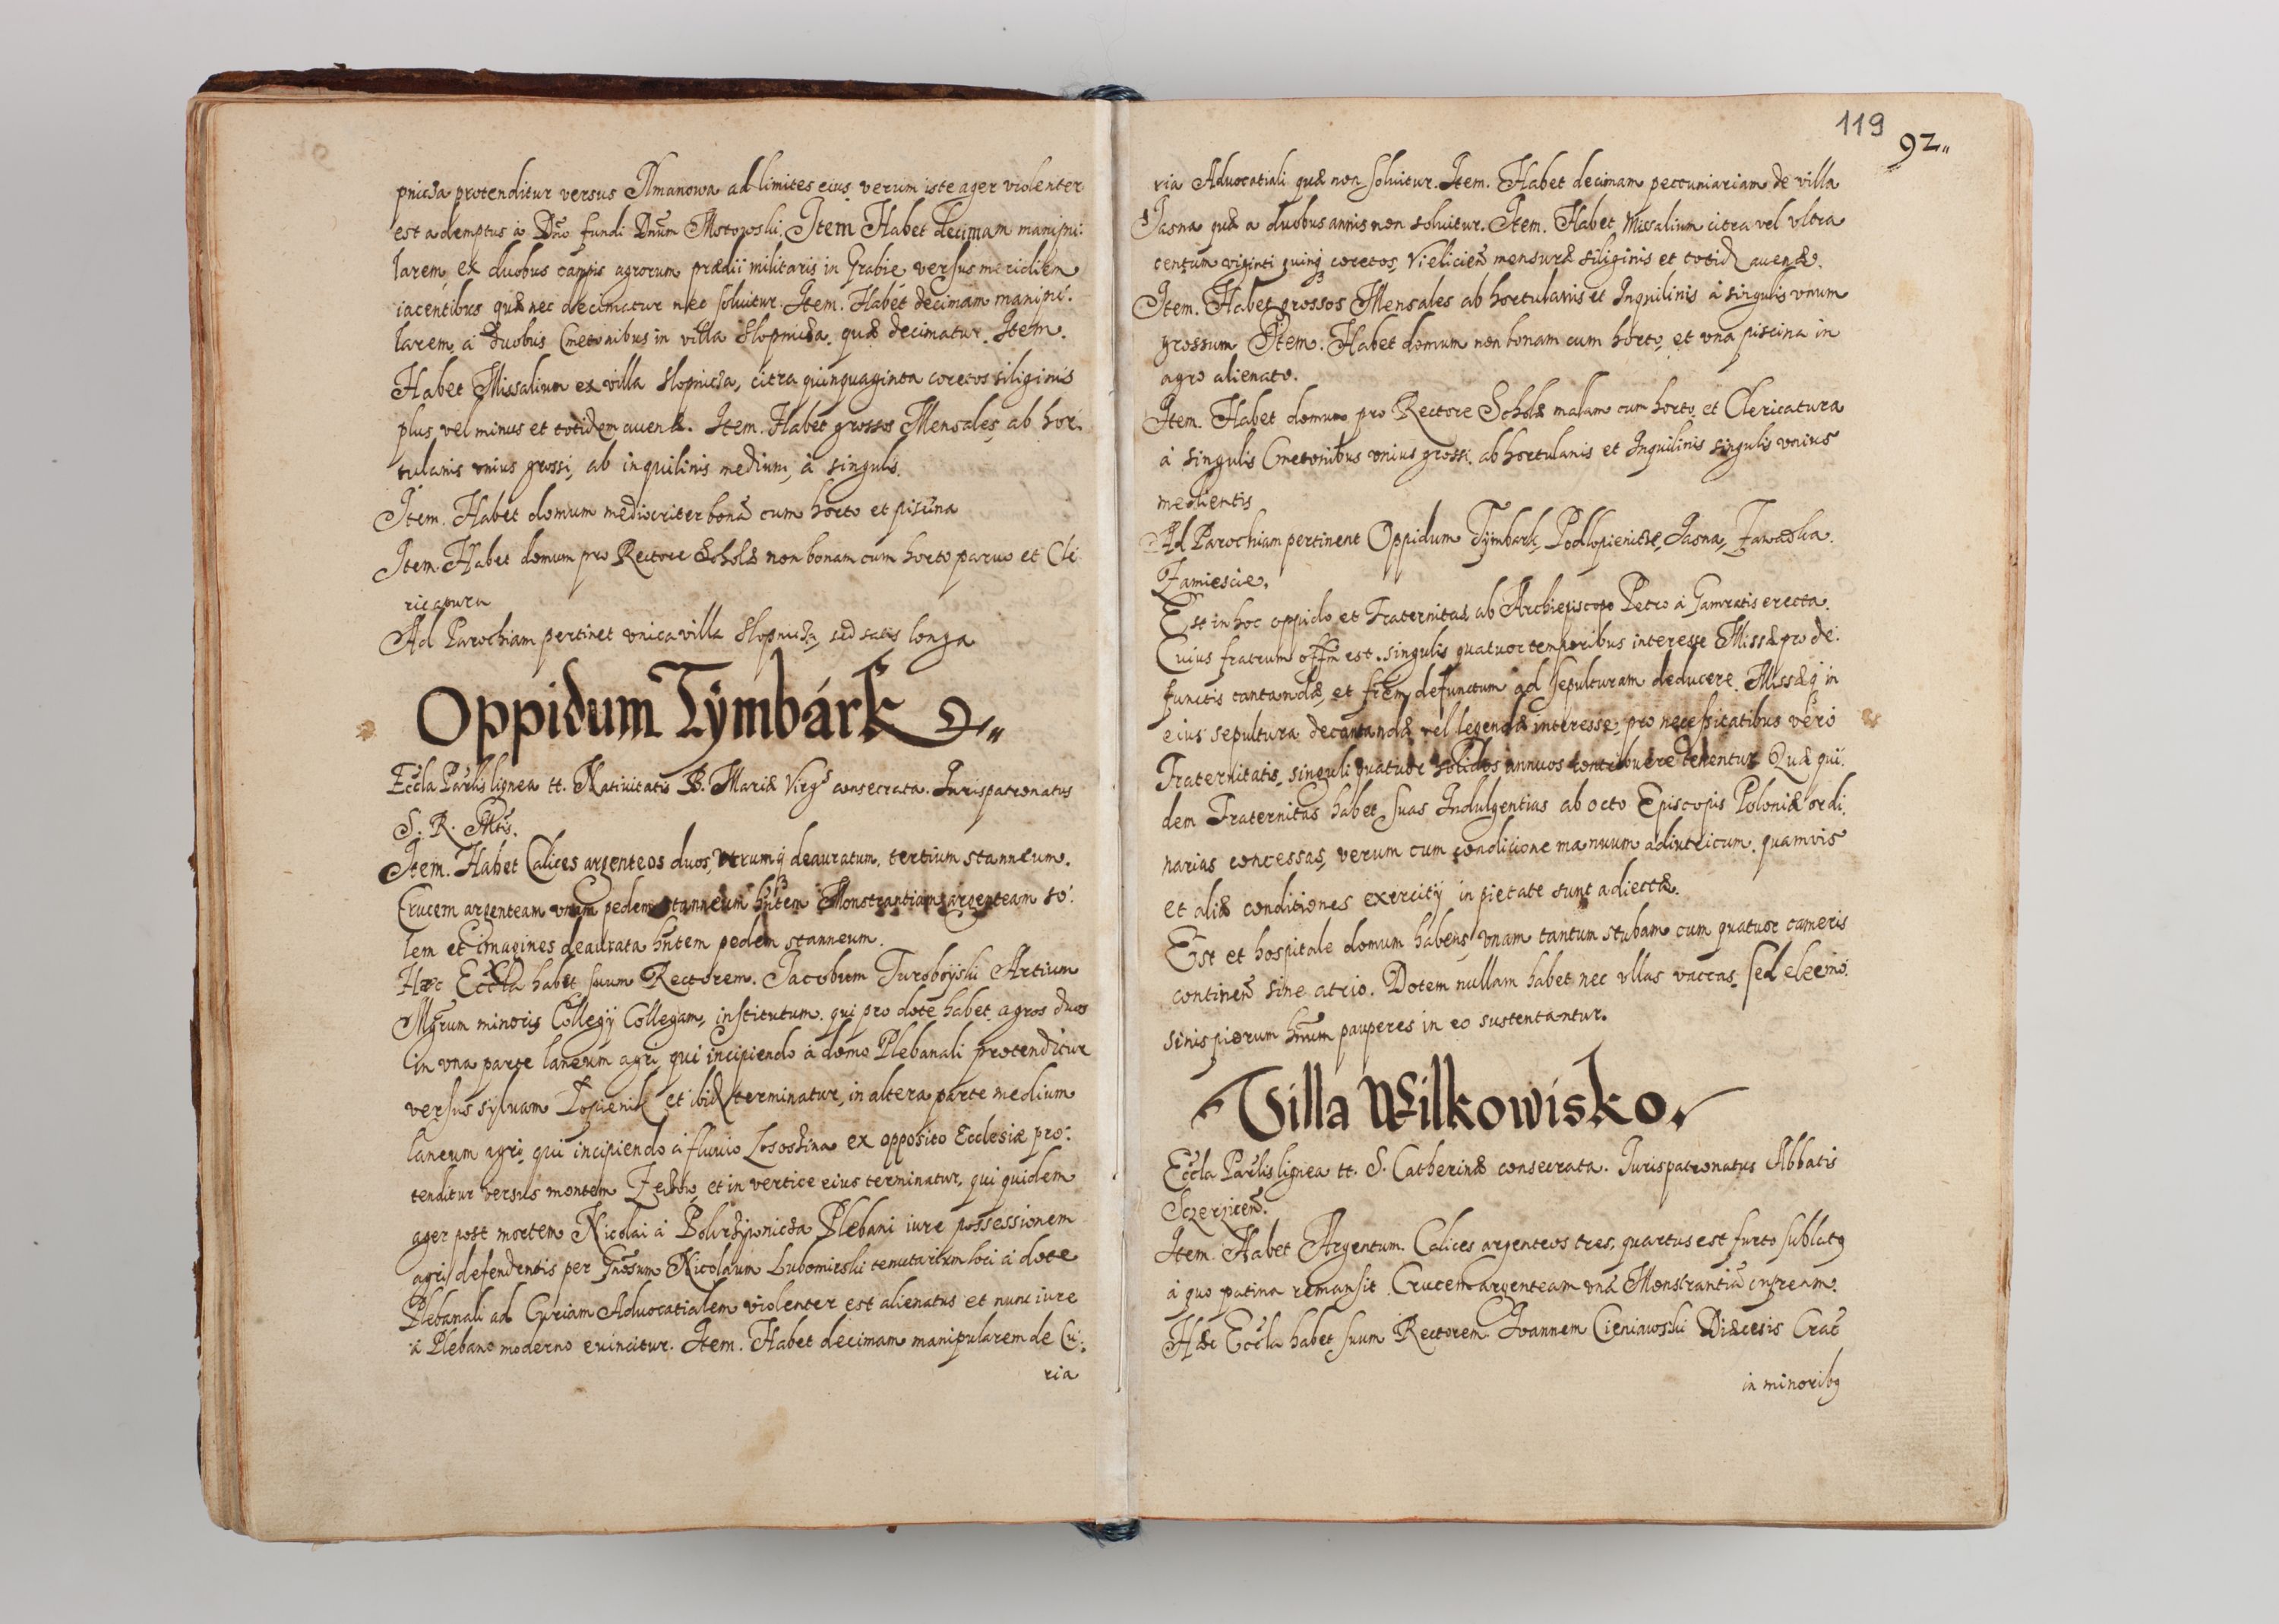 pnicza protenditur versus Ilmanowa ad limites eius verum iste ager violenter
est ademptus à Dno fundi Dnum Mstowski. Item Habet decimam manipu:
larem, ex duobus campis agrorum prædii militaris in Grabie versus meridiem
iacentibus quæ nec decimatur nec soluitur. Item. Habet decimam manipu:
larem, à duobus Cmetonibus in villa Slopnicza, quæ decimatur. Item.
Habet Missalium ex villa Slopnicza, citra quinquaginta coretos siliginis
plus vel minus et totidem auenæ. Item. Habet grossos Mensales, ab hor:
tulanis vnius grossi, ab inquilinis medium, à singulis.
Item. Habet domum mediocriter bonā cum horto et piscina
Item. Habet domum pro Rectore Scholæ non bonam cum horto paruo et Cle
ricatura
Ad Parochiam pertinet vnica villa Slopnicza, sed satis longa
Oppidum Tÿmbárk
Eccla Parlis lignea tt. Natiuitatis B. Mariæ Virgs consecrata. Jurispatronatus
S. R. Mtis.
Item. Habet Calices argenteos duos, vtrumq deauratum, tertium stanneum.
Crucem argenteam vnam pedem stanneum hntem Monstrantiam argenteam so:
lem et imagines deaurata hntem pedem stanneum.
Hæc Eccla habet suum Rectorem. Jacobum Turoboÿski Artium
Mgrum minoris Collegÿ Collegam, institutum. qui pro dote habet agros duos
in vna parte laneum agri, qui incipiendo à domo Plebanali protenditur
versus syluam Lopienik et ibid terminatur, in altera parte medium
laneum agri, qui incipiendo à fluuio Lososzina ex opposito Ecclesiæ pro:
tenditur versus montem et in vertice eius terminatur, qui quidem
ager post mortem Nicolai à Plebani iure possessionem
agri defendentis per Gnosum Nicolaum Lubomirski tenutarium loci à dote
Plebanali ad Curiam Aduocatialem violenter est alienatus et nunc iure
à Plebano moderno euincitur. Item. Habet decimam manipularem de Cu:
ria
119
92
ria Aduocatiali quæ non soluitur. Item. Habet decimam peccuniariam de villa
Jasna quæ a duobus annis non soluitur. Item. Habet Missalium citra vel vltra
centum viginti quinq coretos, Vieliciēn mensuræ siliginis et totid auenæ.
Item. Habet grossos Mensales ab hortulanis et Inquilinis à singulis vnum
grossum Item. Habet domum non bonam cum horto, et vna piscina in
agro alienato.
Item. Habet domum pro Rectore Scholæ malam cum horto et Clericatura
à singulis Cmetonibus vnius grossi. ab hortulanis et Inquilinis singulis vnius
medientis
Ad Parochiam pertinent Oppidum Tÿmbark, Podlopieniæ, Jasna,
Zamiescie.
Est in hoc oppido et Fraternitas ab Archiepiscopo Petro à Gamratis erecta.
Cuius fratrum offm est. singulis quatuor temporibus interesse Missæ pro de:
functis cantandæ, et frem defunctum ad sepulturam deducere. Missæq in
eius sepultura decantandæ vel legendæ interesse, pro necessitatibus vero
Fraternitatis, singuli quatuor solidos annuos contribuere tenentur. Quæ qui:
dem Fraternitas habet suas Indulgentias ab octo Episcopis Poloniæ ordi:
narias concessas, verum cum condicione manuum adiutricum. quamuis
et aliæ conditiones exercitÿ in pietate sunt adiectæ.
Est et hospitale domum habens, vnam tantum stubam cum quatuor cameris
continēn sine atrio. Dotem nullam habet nec vllas vaccas, sed eleemo:
sinis piorum hnum pauperes in eo sustentantur.
Villa Wilkowisko.
Eccla Parlis lignea tt. S. Catherinæ consecrata. Jurispatronatus Abbatis
Sczeziceñ.
Item. Habet Argentum. Calices argenteos tres, quartus est furto sublatq
à quo patina remansit. Crucem argenteam vnā Monstrantiā cupream.
Hæc Eccla habet suum Rectorem Ioannem Cieniawski Diæcesis Crac
in minoribq